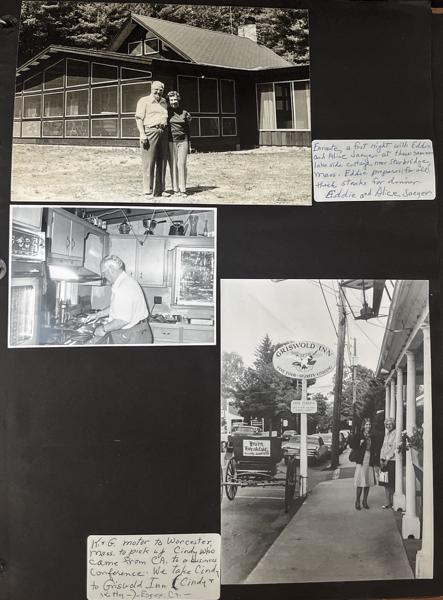 Enroute a first night with Eddie
and Alice Jaeger at their summer
lake side cottage near Sturbridge,
Mass. Eddie prepares for all
thick steaks for dinner
Eddie and Alice Jaeger
GRISWOLD INN
FINE FOOD · SPIRITS · LODGING
K. & G. motor to Worcester,
Mass. to pick up Cindy who
came from CA. to a business
Conference. We take Cindy
to Griswold Inn (Cindy &
Kitty -) Essex, Ct. -